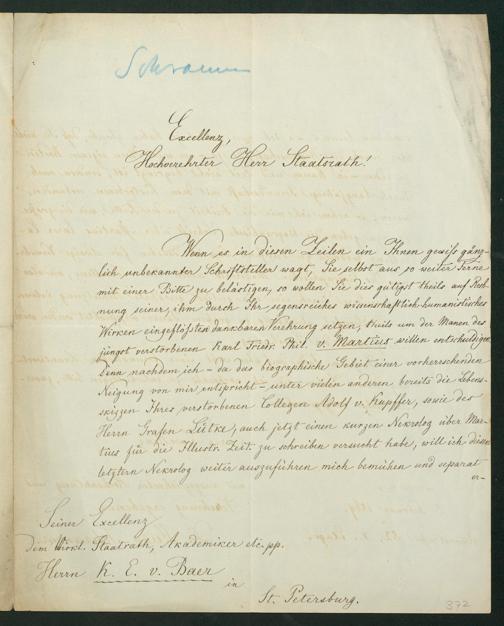 Schramm
Excellenz,
Hochverehrter Herr Staatsrath!
Wenn es in diesen Zeilen ein Ihnen gewiß gänz-
lich unbekannter Schriftsteller wagt, Sie selbst aus so weiter Ferne
mit einer Bitte zu belästigen, so wollen Sie dies gütigst theils auf Rech-
nung seiner, ihm durch Ihr segensreiches wissenschaftlich-humanistisches
Wirken eingeflößten dankbaren Verehrung setzen, theils um der Manen des
jüngst verstorbenen Karl Friedr. Phil. v. Martius willen entschuldigen.
Denn nachdem ich – da das biographische Gebiet einer vorherrschenden
Neigung von mir entspricht – unter vielen anderen bereits die Lebens-
skizzen Ihres verstorbenen Collegen Adolf v. Kupffer, sowie des
Herrn Grafen Lütke, auch jetzt einen kurzen Nekrolog über Mar-
tius für die Illustr. Zeit. zu schreiben versucht habe, will ich diesen
letztern Nekrolog weiter auszuführen mich bemühen und separat
er-
Seiner Excellenz
dem Wirkl. Staatrath, Akademiker etc. pp.
Herrn K. E. v. Baer
in
St. Petersburg.
372